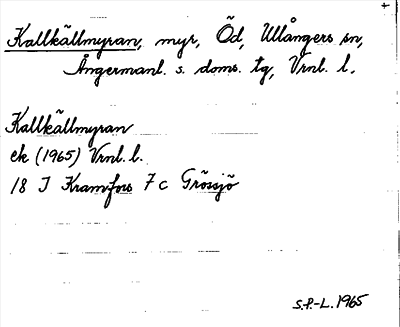 Kallkällmyran, myr, Öd, Ullångers sn,
Ångermanl. s. doms. tg, Vrnl. l.
Kallkällmyran
ek (1965) Vrnl. l.
18 I Kramfors 7 c Grössjö
S.P.-L. 1965